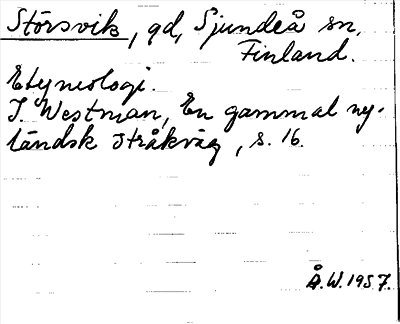 Störsvik, gd, Sjundeå sn,
Finland.
Etymologi.
I. Westman, En gammal ny-
ländsk stråkväg, s. 16.
Å.W. 1957.